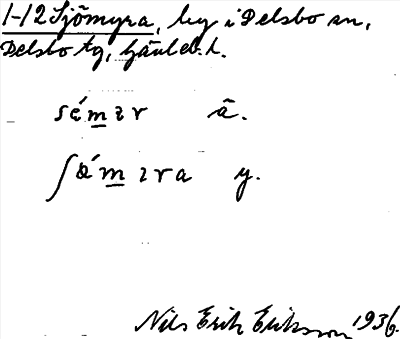 1-12 Sjömyra, by i Delsbo sn,
Delsbo tg, Gävleb. l.
sém̲ɿr ä.
ʃǿm̲ɿra y.
Nils Erik Eriksson 1936.